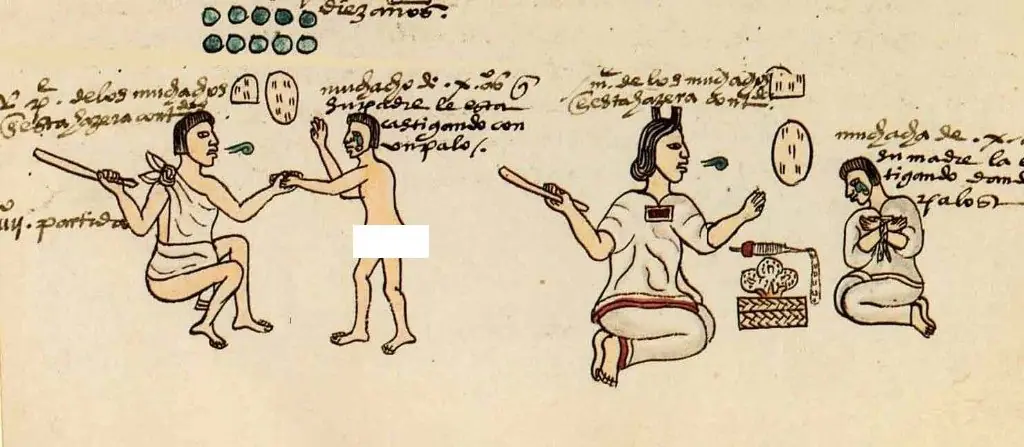 diez años.
pe. de los muchachos
esta hazera contdos
muchacho de .x. aos q
su padre le esta
castigando con
un palo/.
partida
me. de los muchachos
esta hazera cont
muchacha de .x.
su madre la
tigando
palos